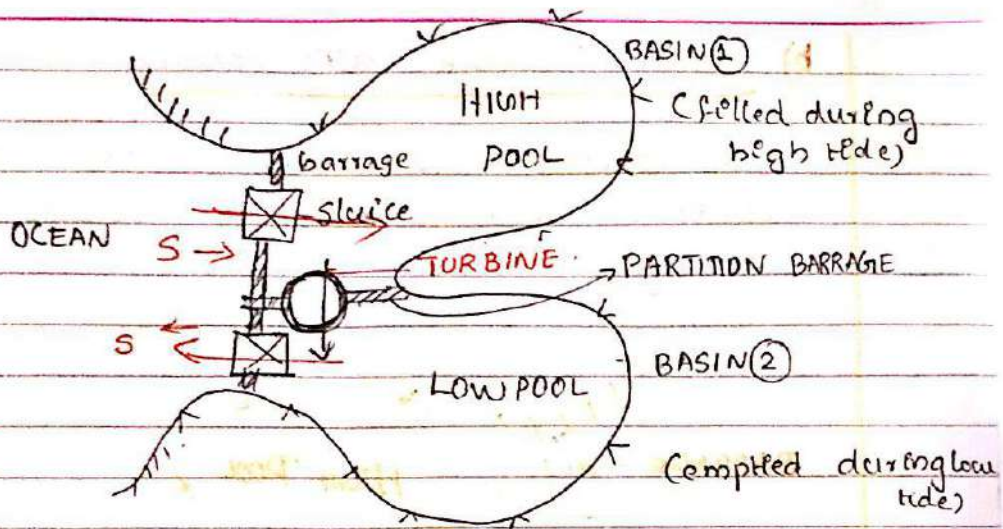 BASIN ①
HIGH
POOL
(filled during
high tide)
barrage
sluice
OCEAN
S →
TURBINE
PARTITION BARRAGE
S
BASIN ②
LOW POOL
(emptied during low
tide)